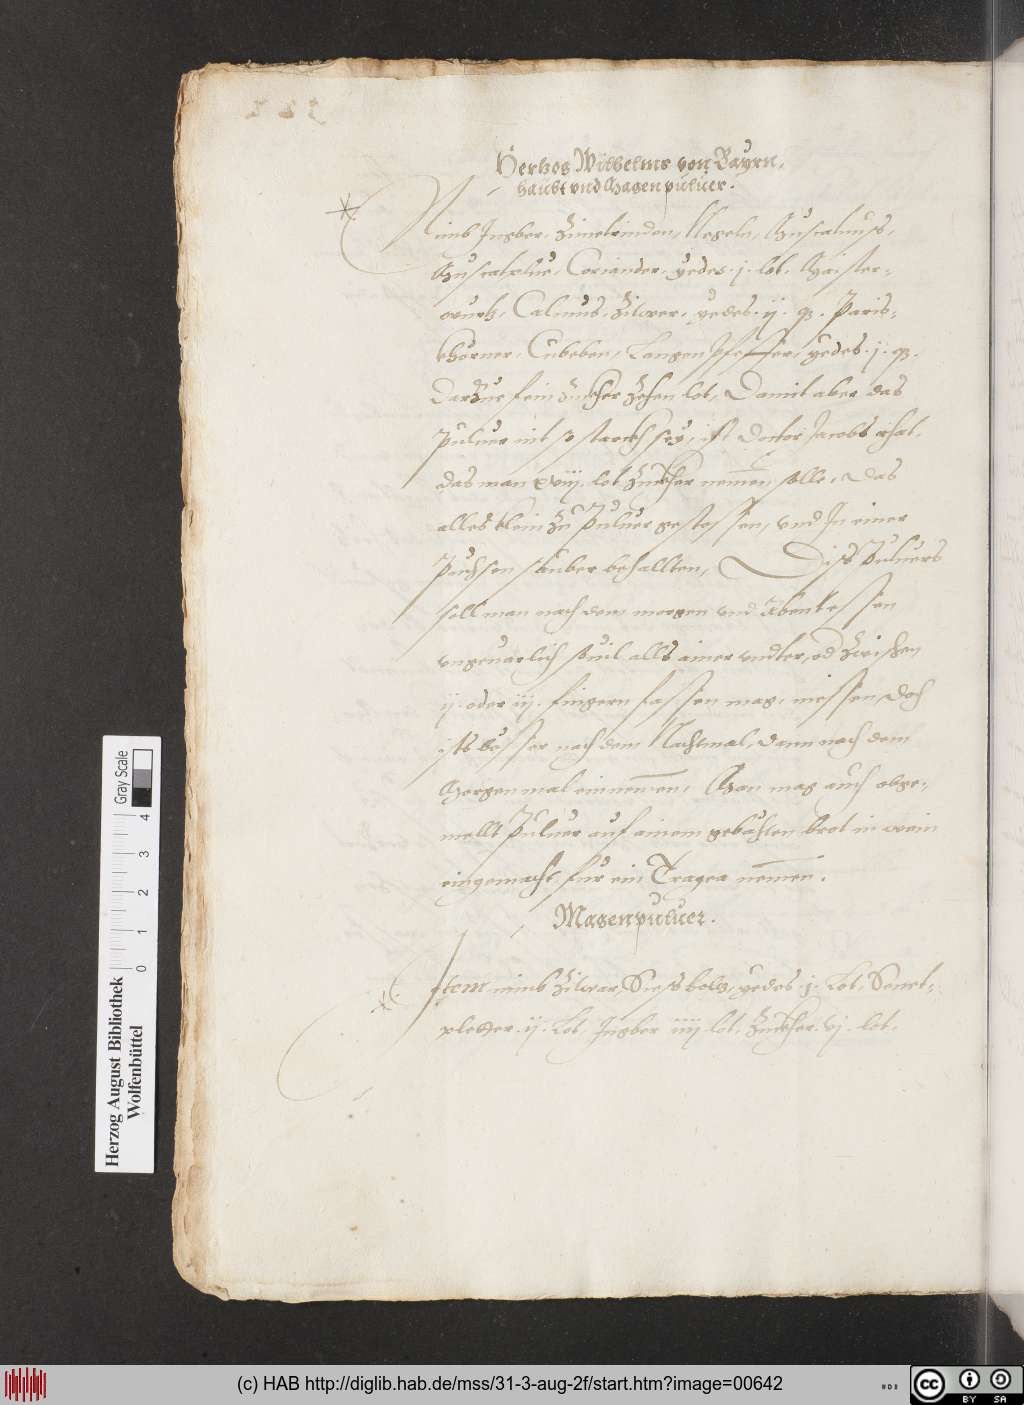 Hertzog Wilhelms von Bayrn,
haubt vnd Magen puluer.
Nimb Ingber, Zimetrinden, Negeln, Muscatnuss,
Muscatplue, Coriander, yedes .j. lot, Maister-
wurtz, Calmus, Zitwer, yedes .ij. q. Paris-
khörner, Cubeben, Langen Pfeffer, yedes .j. q.
Darzue fein Zuckher Zehen lot, Damit aber das
Puluer nit so starckh sey, ist Doctor Jacobs rhat,
das man xviij. lot Zuckher nemen solle, Das
alles klein Zu Puluer gestossen, vnd In einer
Püchsen sauber behallten, Diss Puluers
soll man nach dem morgen vnd Abentessen
vngeuarlich souil alls ainer vndter, od zwischen
ij. oder iij. fingern fassen mag, niessen, doch
ists besser nach dem Nachtmal, dann nach dem
Morgenmal einnemen, Man mag auch obge-
mellt Puluer auf ainem gebähten brot in wein
eingemacht, für ein Tragea nemen.
Magenpuluer.
Item nimb Zitwar, Siessholtz, yedes .j. Lot, Senet-
pletter .ij. Lot, Ingber iiij lot, Zuckher .vj. lot.
Herzog August Bibliothek
Wolfenbüttel
0 1 2 3 4
Gray Scale
(c) HAB http://diglib.hab.de/mss/31-3-aug-2f/start.htm?image=00642
cc BY SA